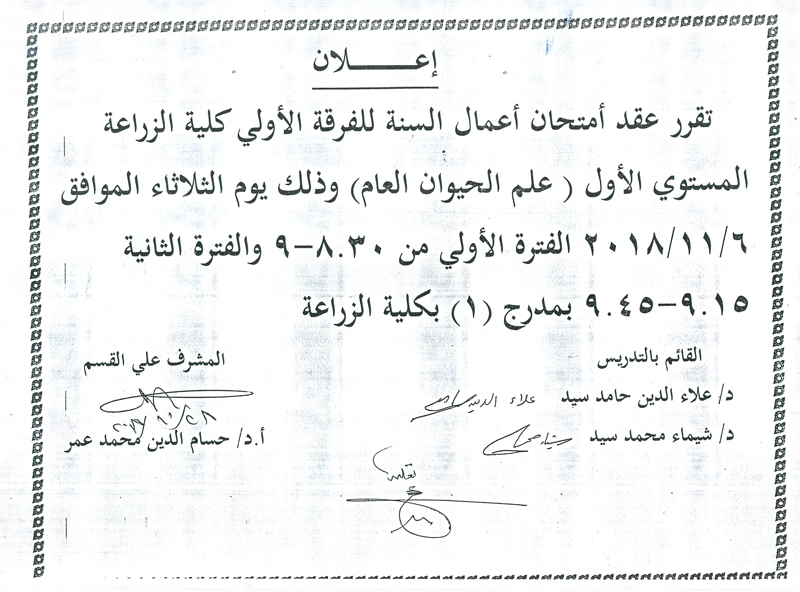 إعـــــــلان
تقرر عقد أمتحان أعمال السنة للفرقة الأولي كلية الزراعة
المستوي الأول ( علم الحيوان العام) وذلك يوم الثلاثاء الموافق
٢٠١٨/١١/٦ الفترة الأولي من ٨.٣٠–٩ والفترة الثانية
٩.١٥–٩.٤٥ بمدرج (١) بكلية الزراعة
القائم بالتدريس
د/ علاء الدين حامد سيد علاء الدين
د/ شيماء محمد سيد
المشرف علي القسم
أ.د/ حسام الدين محمد عمر